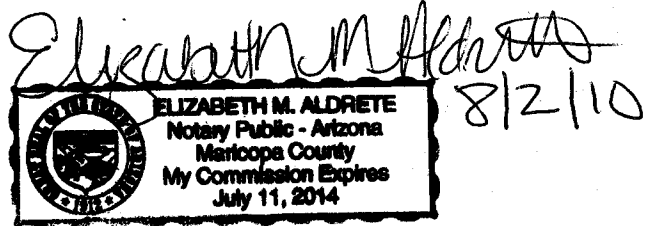 Elizabeth M Aldrete
8/2/10
ELIZABETH M. ALDRETE
Notary Public - Arizona
Maricopa County
My Commission Expires
July 11, 2014
1912